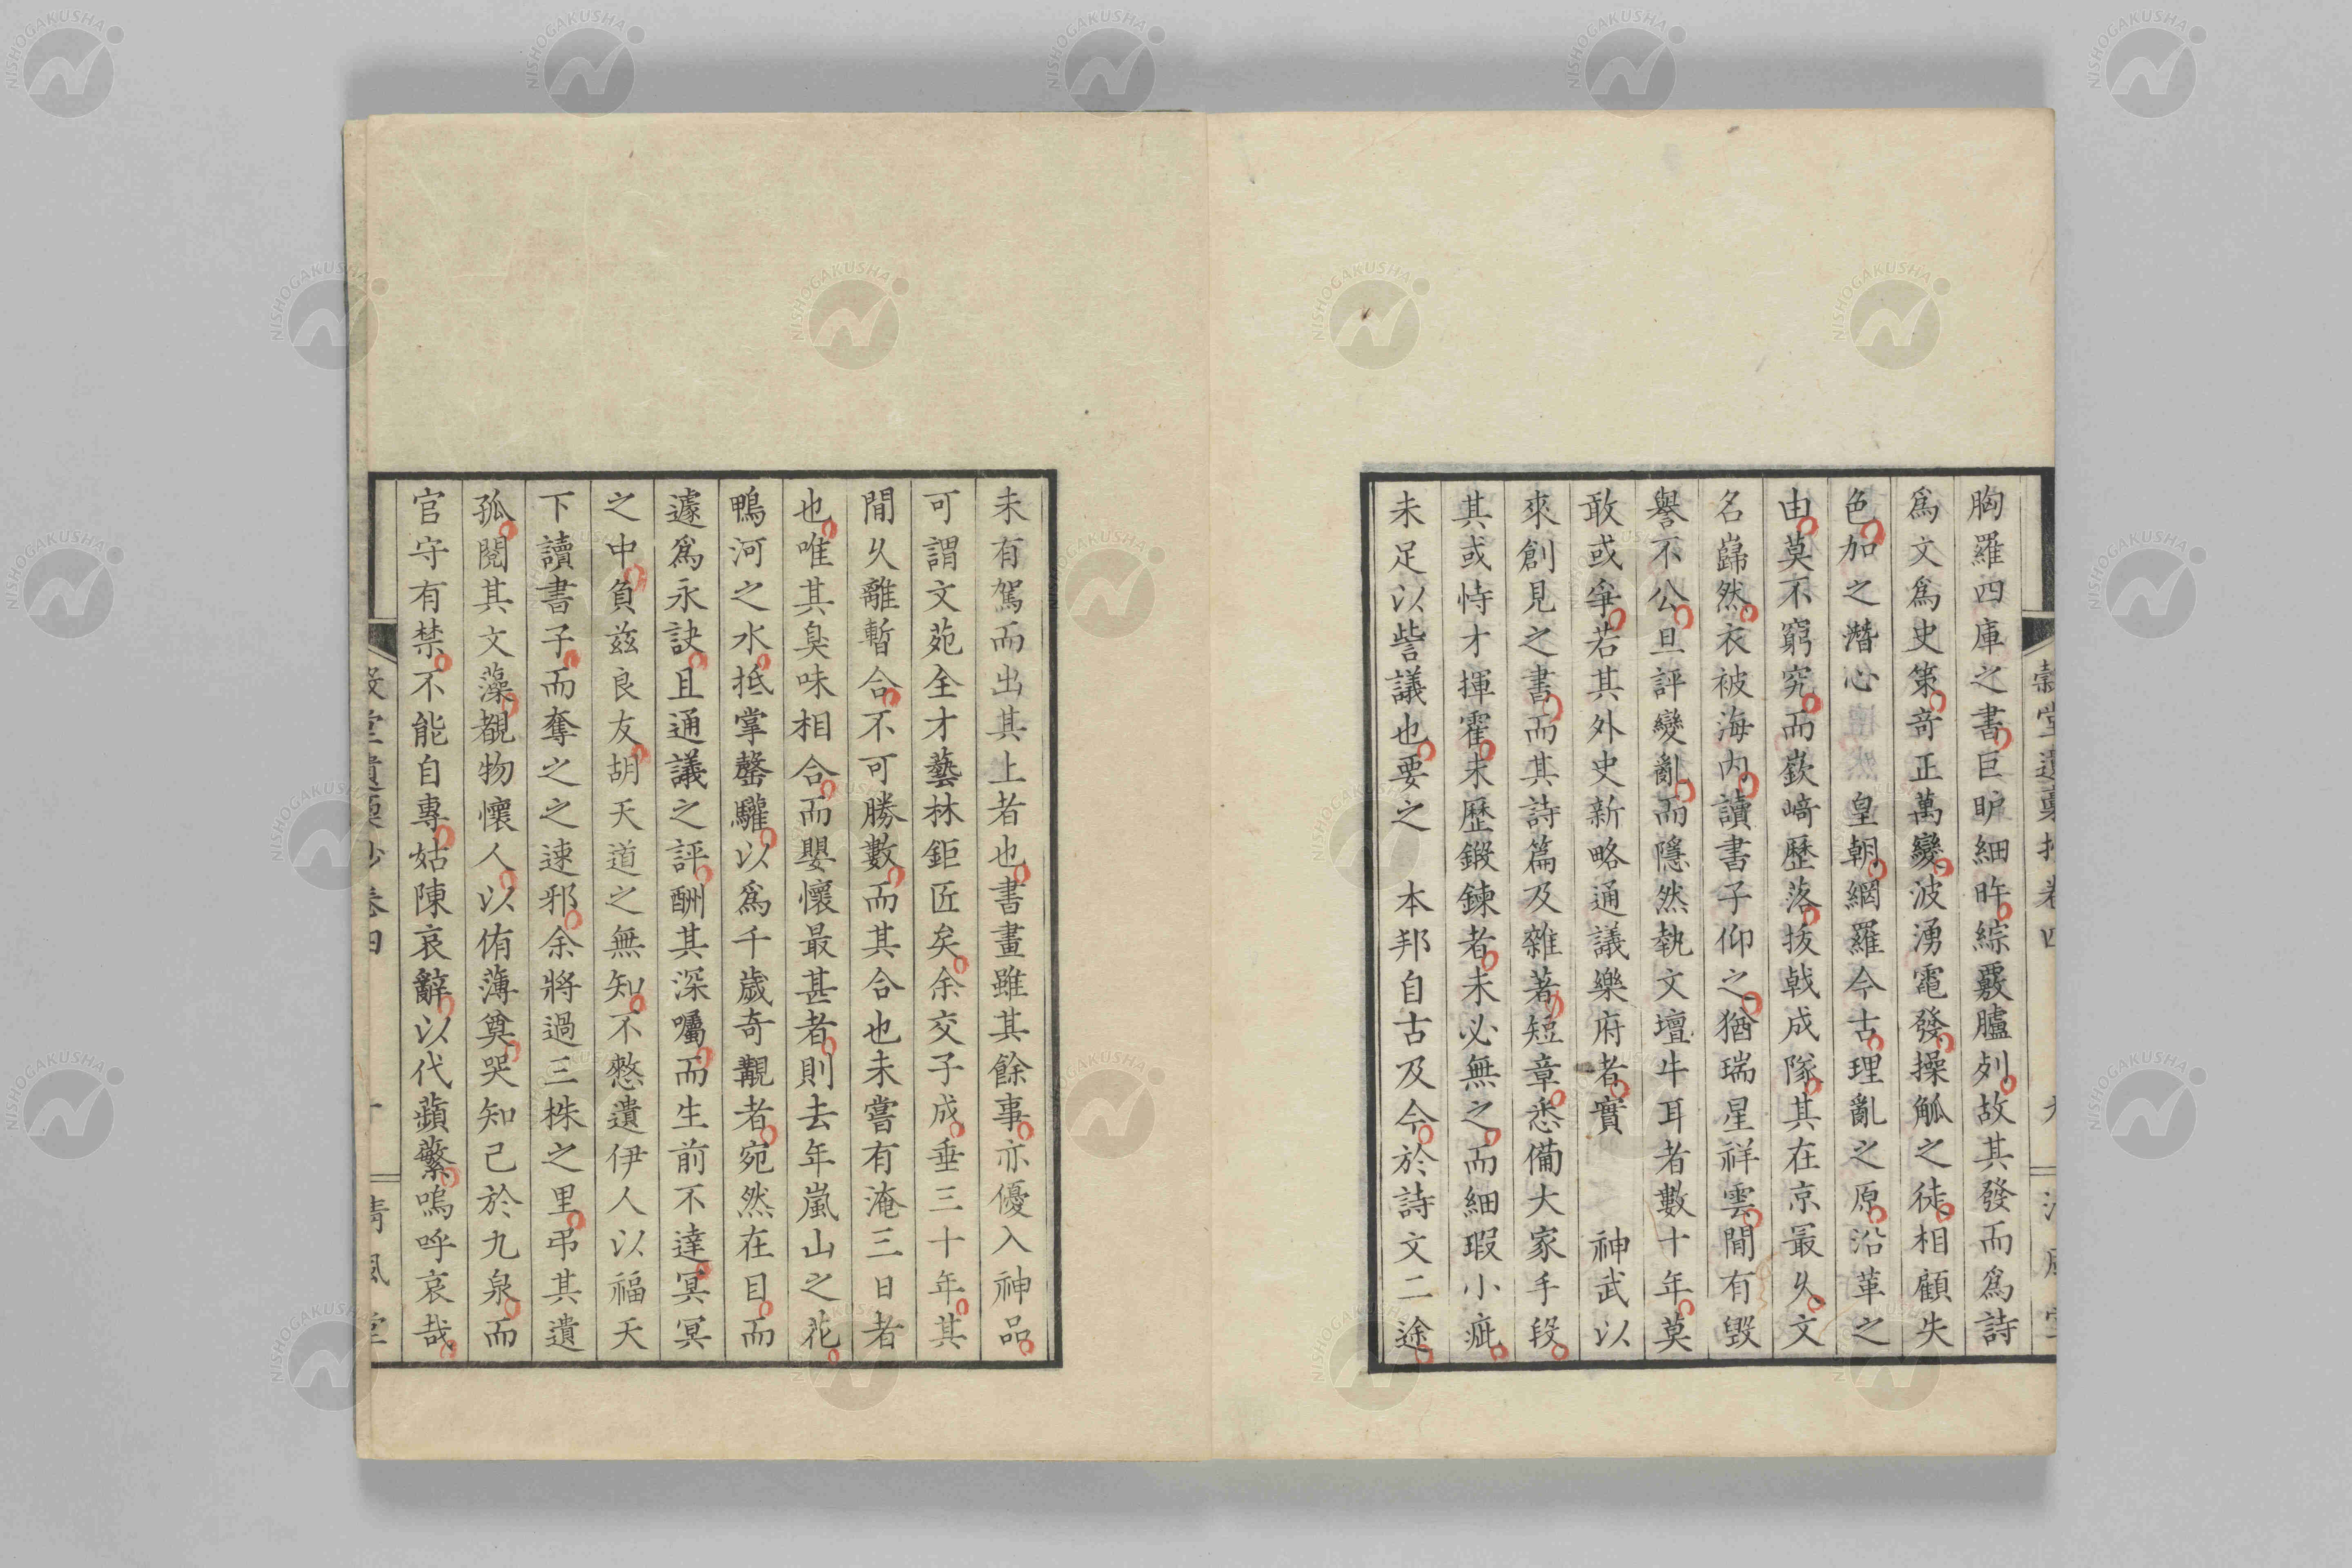 胸羅四庫之書巨眆細昨綜覈臚列故其發而爲詩
爲文爲史策奇正萬變波湧電發操觚之徒相顧失
色加之潛心皇朝網羅今古理亂之原沿革之
由莫不窮究而嶔﨑歷落拔戟成隊其在京最久文
名巋然衣被海內讀書子仰之猶瑞星祥雲間有毀
譽不公旦評變亂而隱然執文壇牛耳者數十年莫
敢或爭若其外史新略通議樂府者實 神武以
來創見之書而其詩篇及雜著短章悉備大家手段
其或恃才揮霍未歷鍛鍊者未必無之而細瑕小疵
未足以訾議也要之 本邦自古及今於詩文二途
未有駕而出其上者也書畫雖其餘事亦優入神品
可謂文苑全才藝林鉅匠矣余交子成垂三十年其
間久離暫合不可勝數而其合也未嘗有淹三日者
也唯其臭味相合而嬰懷最甚者則去年嵐山之花
鴨河之水抵掌罄驩以爲千歲奇覯者宛然在目而
遽爲永訣且通議之評酬其深囑而生前不達冥冥
之中負茲良友胡天道之無知不憗遺伊人以福天
下讀書子而奪之之速邪余將過三株之里弔其遺
孤閱其文藻覩物懷人以侑薄奠哭知己於九泉而
官守有禁不能自專姑陳哀辭以代蘋蘩嗚呼哀哉